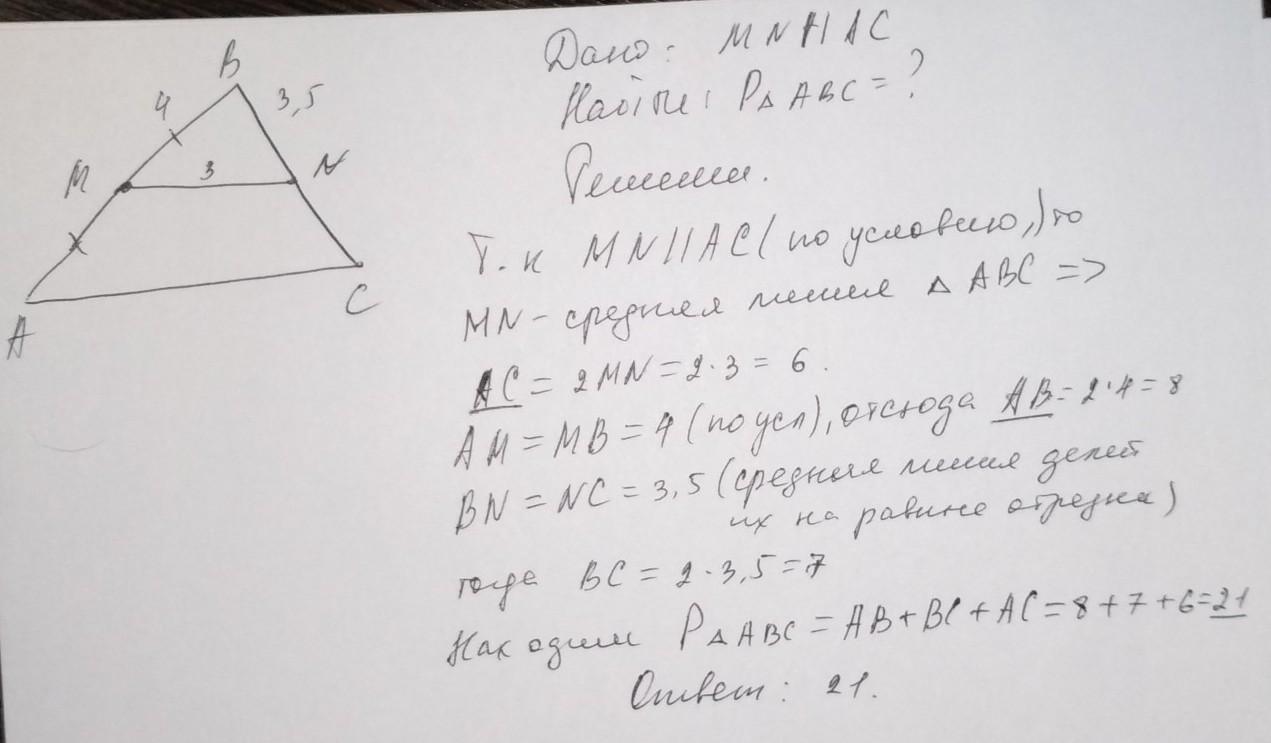 B
4
3,5
M
3
N
A
C
Дано: MN || AC
Найти: P△ABC = ?
Решение.
Т.к MN || AC (по условию,) то
MN - средняя линия △ ABC =>
AC = 2MN = 2·3 = 6.
AM = MB = 4 (по усл), отсюда AB = 2·4 = 8
BN = NC = 3,5 (средняя линия делит
их на равные отрезки)
тогда BC = 2·3,5 = 7
Находим P△ABC = AB + BC + AC = 8 + 7 + 6 = 21
Ответ: 21.